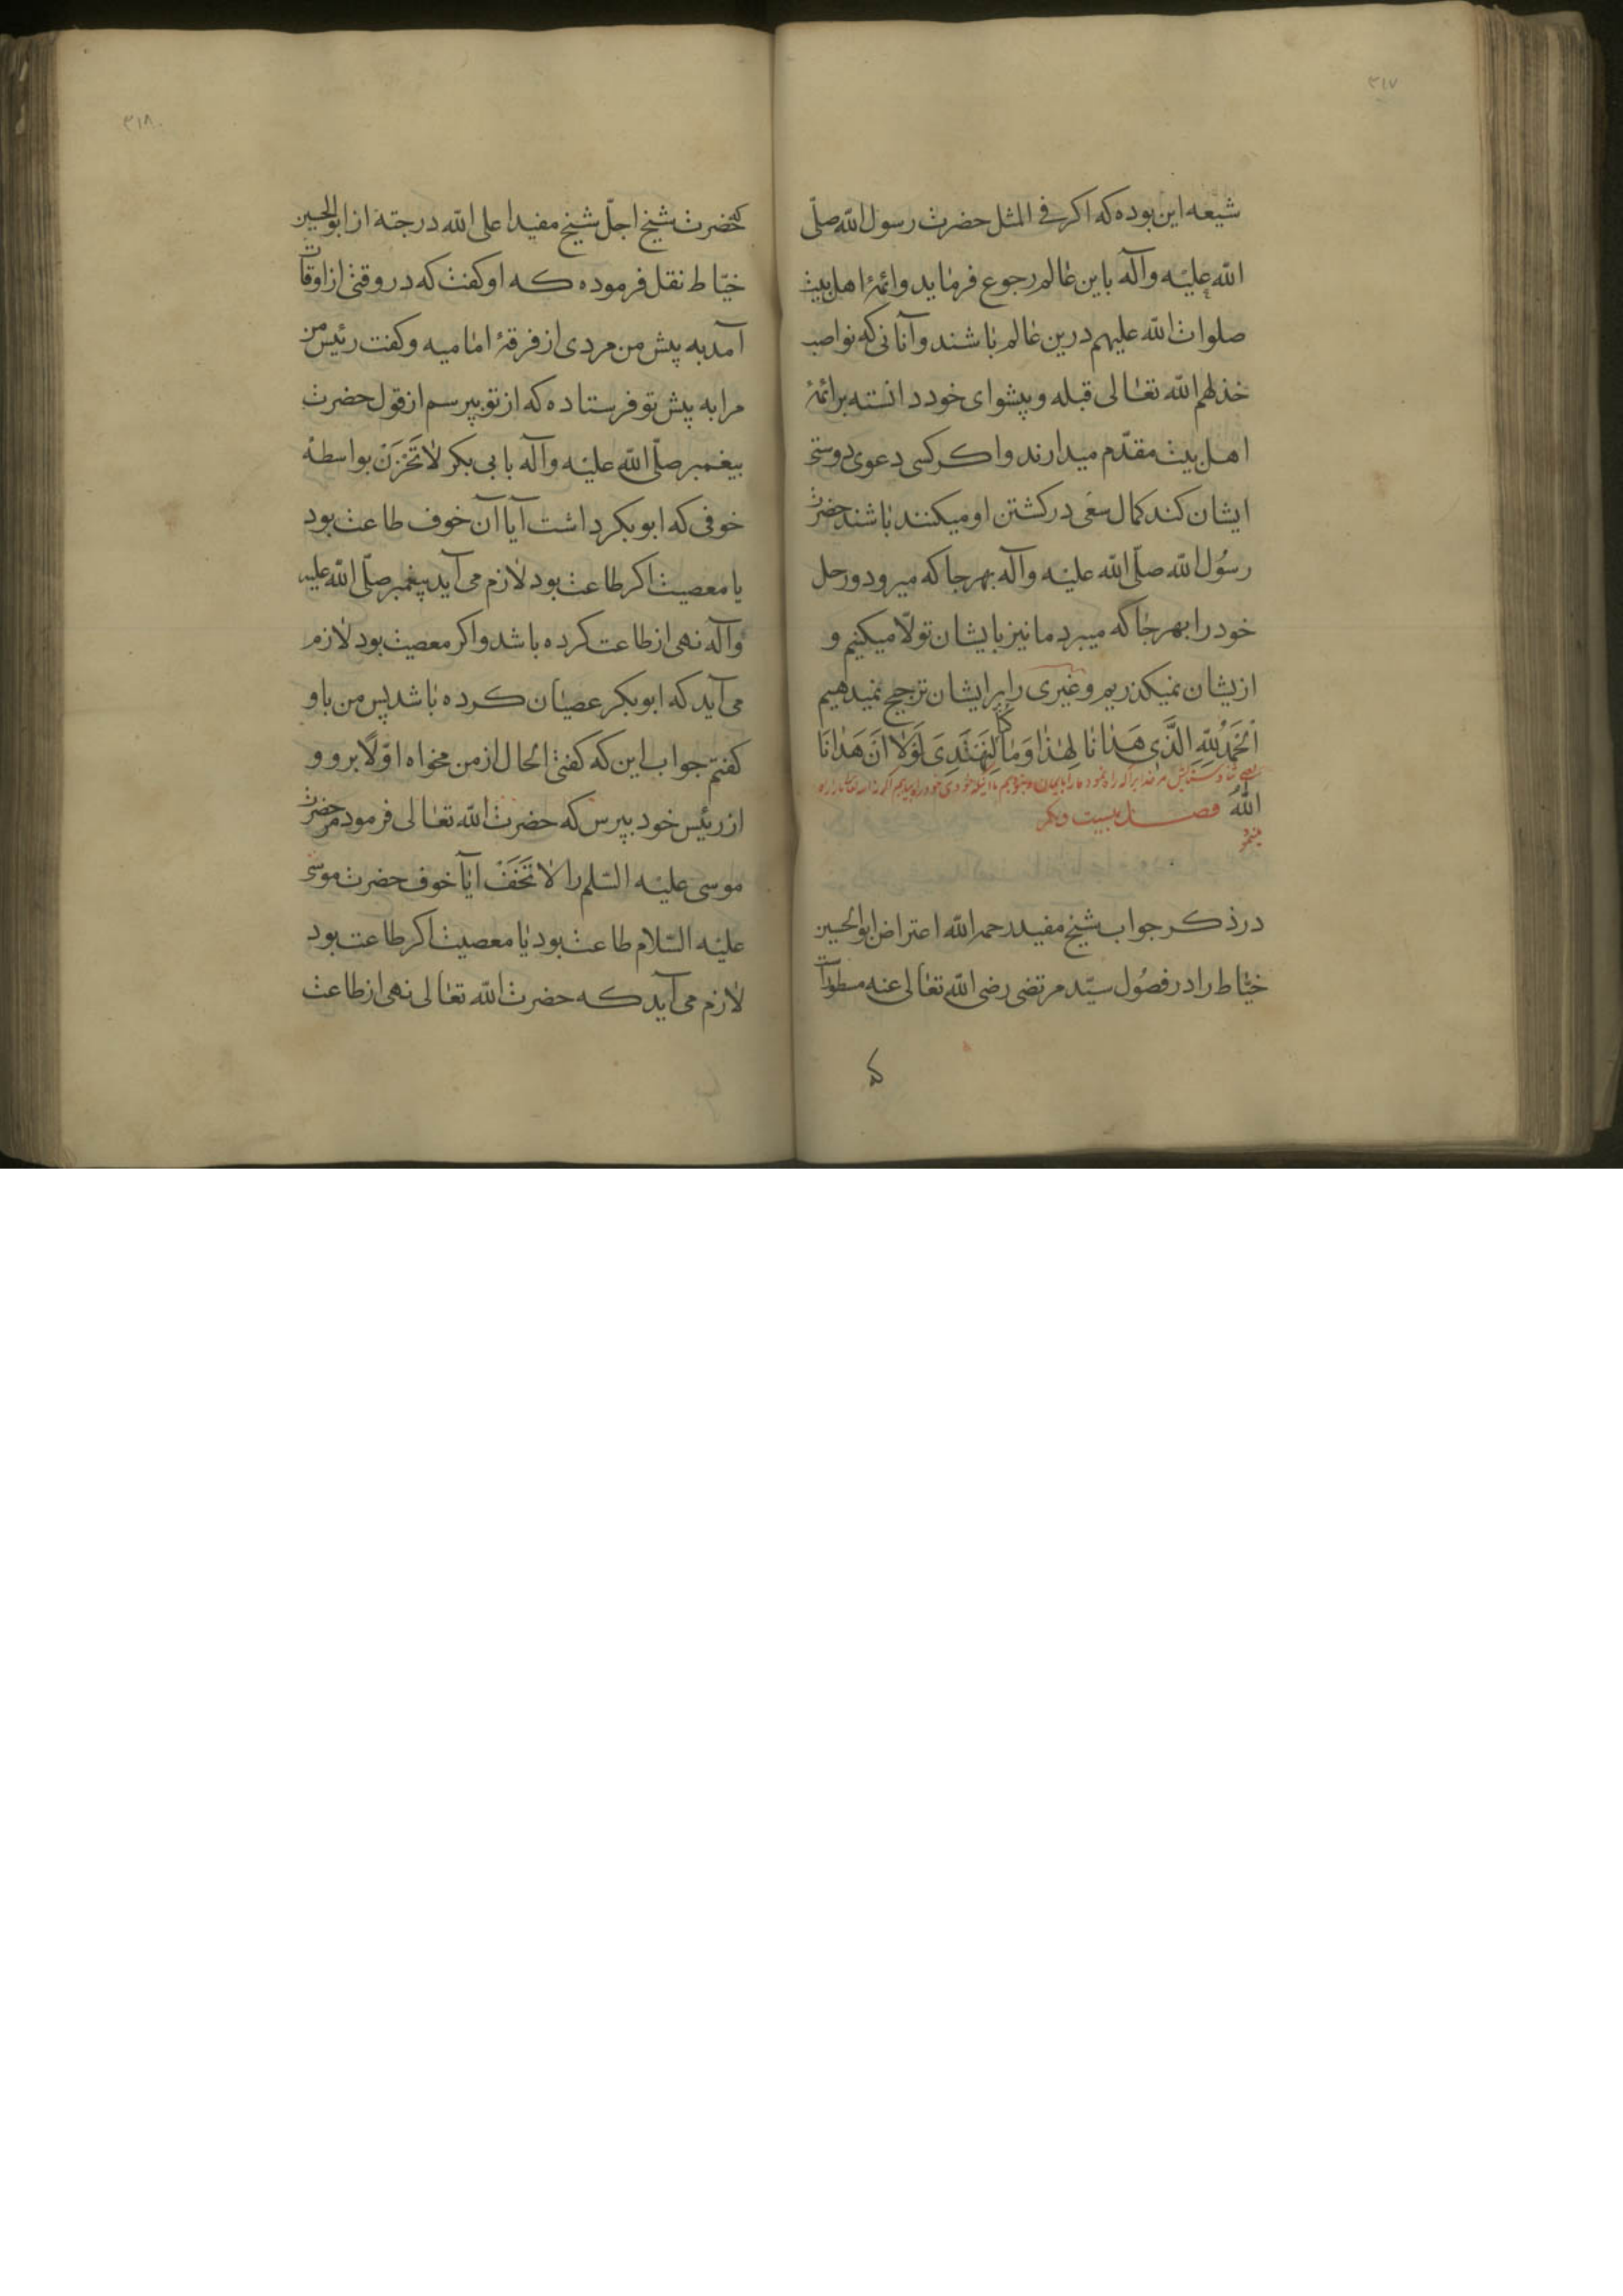 ۳۱۷
شیعه این بوده که اکر فی المثل حضرت رسول الله صلّی
الله علیه وآله باین عالم رجوع فرماید وائمۀ اهل بیت
صلوات الله علیهم درین عالم باشند وآنانی که نواصب
خذلهم الله تعالی قبله و پیشوای خود دانسته بر ائمۀ
اهل بیت مقدّم میدارند واکر کسی دعوی دوستی
ایشان کند کمال سعی در کشتن او میکنند باشند حضرت
رسول الله صلّی الله علیه وآله بهر جا که میرود ورحل
خود را بهر جا که میبرد ما نیز بایشان تولّا میکنیم و
ازیشان نمیکذریم وغیری را بر ایشان ترجیح نمیدهیم
اَلْحَمْدُ لِلّهِ الَّذی هَدانا لِهٰذا وَمٰا کُنّا لِنَهْتَدِیَ لَوْلٰا اَنْ هَدٰانَا
اللهُ فصل بیست ویکم
در ذکر جواب شیخ مفید رحمه الله اعتراض ابوالحسین
خیّاط را در فصول سیّد مرتضی رضی الله تعالی عنه مسطورات
که
۳۱۸
که حضرت شیخ اجلّ شیخ مفید اعلی الله درجته از ابوالحسین
خیّاط نقل فرموده که او کفت که در وقتی از اوقات
آمد به پیش من مردی از فرقۀ امامیه وکفت رئیس من
مرا به پیش تو فرستاده که از تو بپرسم از قول حضرت
پیغمبر صلّی الله علیه وآله بابی بکر لٰا تَحْزَنْ بواسطۀ
خوفی که ابوبکر داشت آیا آن خوف طاعت بود
یا معصیت اکر طاعت بود لازم می آید پیغمبر صلّی الله علیه
وآله نهی از طاعت کرده باشد واکر معصیت بود لازم
می آید که ابوبکر عصیان کرده باشد پس من باو
کفتم جواب این که کفتی الحال از من مخواه اوّلًا برو و
از رئیس خود بپرس که حضرت الله تعالی فرمود مر حضرت
موسی علیه السّلم را لٰا تَخَفْ آیا خوف حضرت موسی
علیه السّلام طاعت بود یا معصیت اکر طاعت بود
لازم می آید که حضرت الله تعالی نهی از طاعت